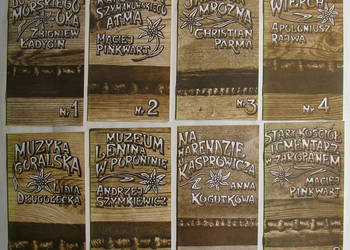 MORSKIEGO
OKA
ZBIGNIEW
ŁADYGIN
Nr 1
SZYMANOWSKIEGO
ATMA
MACIEJ
PINKWART
Nr 2
MROŹNA
CHRISTIAN
PARMA
Nr 3
WIERCH
APOLONIUSZ
RAJWA
Nr 4
MUZYKA
GÓRALSKA
LIDIA
DŁUGOŁĘCKA
MUZEUM
LENINA
W PORONINIE
ANDRZEJ
SZYMKIEWICZ
NA
HARENDZIE
KASPROWICZA
ANNA
KOGUTKOWA
STARY KOŚCIÓŁ
I CMENTARZ
W ZAKOPANEM
MACIEJ
PINKWART